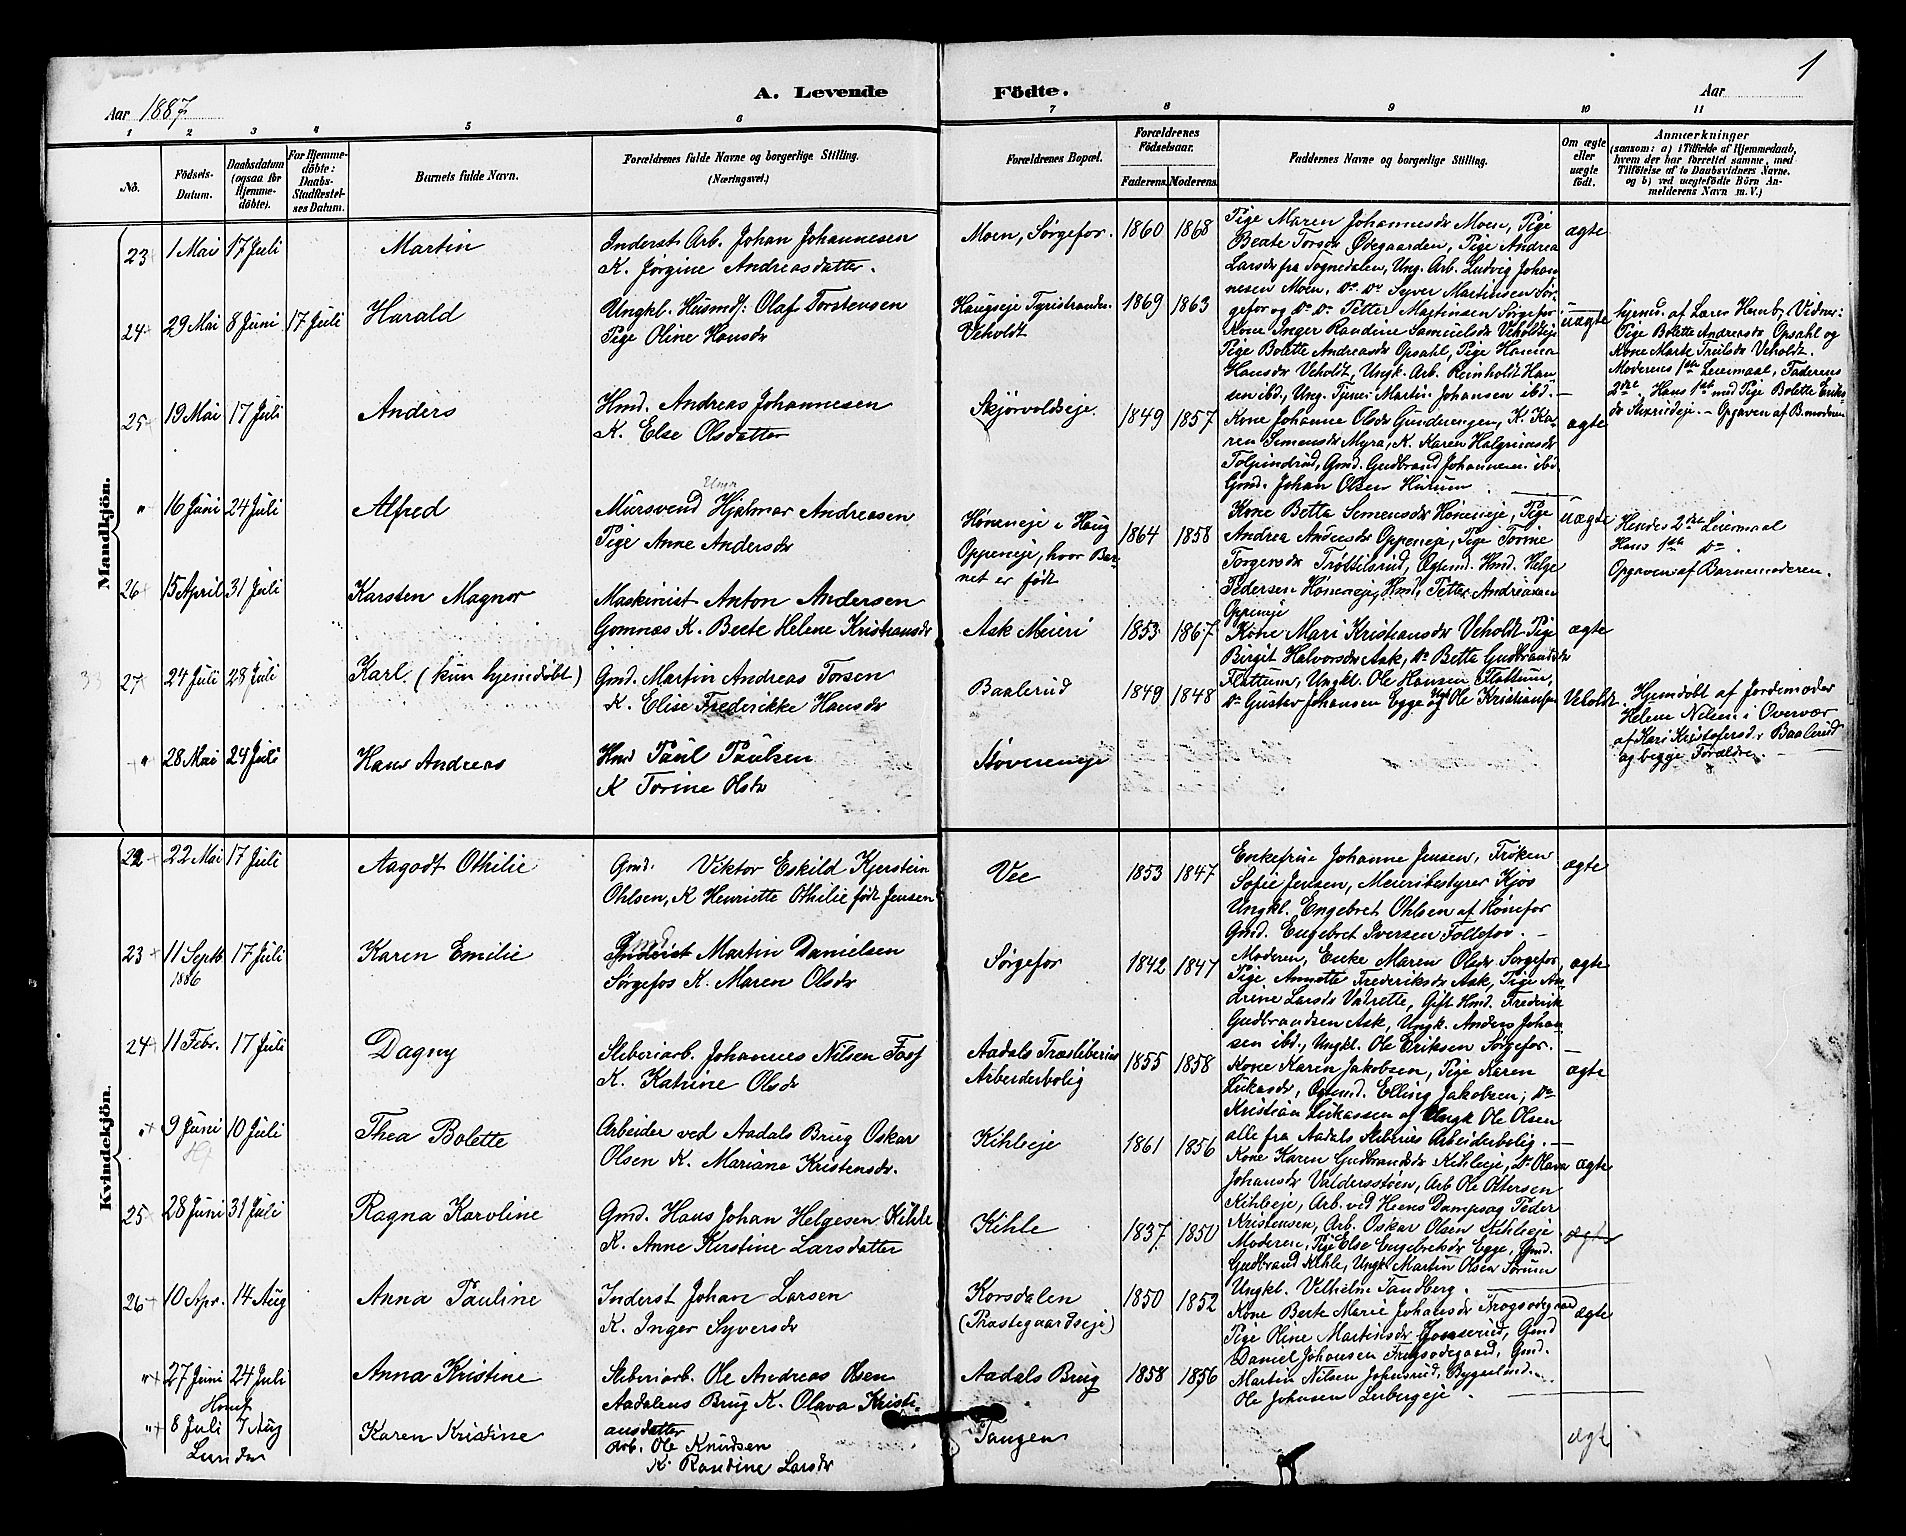 1
Aar 1887
A. Levende Födte.
Aar
1 2 3 4 5 6 7 8 9 10 11
No.
Födsels-Datum.
Daabsdatum (ogsaa for Hjemmedöbte).
For Hjemmedöbte: Daabs-Stadfæstelses Datum.
Barnets fulde Navn.
Forældrenes fulde Navne og borgerlige Stilling.
(Næringsvei.)
Forældrenes Bopæl.
Forældrenes Födselsaar.
Faderens. Moderens.
Faddernes Navne og borgerlige Stilling.
Om ægte eller uægte födt.
Anmærkninger
(saasom: a) i Tilfælde af Hjemmedaab, hvem der har forrettet samme, med Tilföielse af to Daabsvidners Navne, og b) ved uægtefödte Börn Anmelderens Navn m. V.)
Mandkjön.
23 1 Mai 17 Juli Martin
Inderst Arb. Johan Johannesen
K. Jørgine Andreasdatter.
Moen, Sørgefos. 1860 1868
Pige Maren Johannesdr Moen, Pige
Beate Torsdr Ødegaarden, Pige Andrea
Larsdr fra Sognedalen, Ung. Arb. Ludvig Johan
nesen Moen, Do Do Syver Martinsen Sør
gefos og Do Do Petter Martinsen Sørgefos.
ægte
24 29 Mai 8 Juni 17 Juli Harald
Ungkl. Husmds. Olaf Torstensen
Pige Oline Hansdr
Haugseje Tyristranden
Veholdt
1869 1863
Kone Inger Randine Samuelsdr Veholdteje
Pige Bolette Andreasdr Opsahl, Pige Hanna
Hansdr Veholdt, Ungk. Arb. Reinholdt Han
sen ibd, Ung. Tjener Martin Johansen ibd.
uægte
hjemd. af Lærer Hemb, Vidner:
Pige Bolette Andreasdr Opsahl og
Kone Marte Truilsdr Veholdt.
Moderens 1ste Leiermaal, Faderens
2det. Hans 1st med Pige Bolette Eriks
dr. – Opgaven af Bmoderen
25 19 Mai 17 Juli Anders
Hmd. Andreas Johannesen
K. Else Olsdatter
Skjørvoldseje. 1849 1857
Kone Johanne Olsdr Gunderengen, K. Ka
ren Simensdr Myra, K. Karen Halgrimsdr
Tolpindrud, Gmd. Gudbrand Johannesen ibd
Gmd. Johan Olsen Hurum
ægte
" 16 Juni 24 Juli Alfred
Ungk
Mursvend Hjalmar Andreasen
Pige Anne Andersdr
Høneneje i Haug
Oppeneje, hvor Bar
net er født
1864 1858
Kone Bette Simensdr Høneneje, Pige
Andrea Andersdr Oppeneje, Pige Torine
Torgersdr Trøttelsrud, Hmd. Helge
Pedersen Høneneje, Hmd, Petter Andreasen
Oppeneje
uægte
Hendes 2det Leiermaal
Hans 1ste Do.
Opgaven af Barnemoderen.
26 15 April 31 Juli Karsten Magnor
Maskinist Anton Andersen
Gomnæs K. Beete Helene Kristiansdr
Ask Meieri 1853 1867
Kone Mari Kristiansdr Veholdt Pige
Birgit Halvorsdr Ask, Do Bette Gudbrandsdr
Flattum, Ungkl. Ole Hansen Flattum,
Do Gustav Johansen Egge og Ungk Ole Kristiansen
Veholdt.
ægte
27 24 Juli 28 Juli Karl (kun hjemdøbt)
Gmd. Martin Andreas Torsen
K. Elise Frederikke Hansdr
Baalerud 1849 1848
Hjemdøbt af Jordemoder
Helene Nilsen i Overvær
af Kari Kristofersdr Baalerud
og begge Forældre.
" 28 Mai 24 Juli Hans Andreas
Hmd Paul Paulsen
K Torine Olsdr
Stoveneneje
Kvindekjön.
22 22 Mai 17 Juli Aagodt Othilie
Gmd. Viktor Eskild Kjerstein
Ohlsen, K Henriette Othilie født Jensen
Vee 1853 1847
Enkefrue Johanne Jensen, Frøken
Sofie Jensen, Meieribestyrer Kjøs
Ungkl. Engebret Ohlsen af Hønefos
Gmd. Engebret Iversen Follefos.
ægte
23 11 Septb 17 Juli Karen Emilie
1886
Gmd
Inderst Martin Danielsen
Sørgefos K. Maren Olsdr
Sørgefos 1842 1847
Moderen, Enke Maren Olsdr Sørgefos,
Pige Annette Frederiksdr Ask, Pige An
drine Larsdr, Gift Hmd. Frederik
Gudbrandsen Ask, Ungk. Anders Johan
sen ibd., Ungkl. Ole Eriksen Sørgefos.
ægte
24 11 Febr. 17 Juli Dagny
Sliberiarb. Johannes Nilsen Foss
K. Katrine Olsdr
Aadals Træsliberies
Arbeiderbolig
1855 1858
Kone Karen Jakobsen, Pige Karen
Lukasdr, Elling Jakobsen, Do
Kristian Lukassen af Ungk Ole Olsen
alle fra Aadals Sliberies Arbeiderbolig.
ægte
" 9 Juni 10 Juli Thea Bolette
Arbeider ved Aadals Brug Oskar
Olsen K. Mariane Kristensdr.
Kihleeje 1861 1856
Kone Karen Gudbrandsdr Kihleeje, Do Olava
Johansdr Valdersstøen, Arb Ole Ottersen
Kihleeje, Arb. ved Heens Dampsag Peder
Kristensen, Arb. Oskar Olsen Kihleeje
ægte
25 28 Juni 31 Juli Ragna Karoline
Gmd. Hans Johan Helgesen Kihle
K. Anne Kirstine Larsdatter
Kihle 1837 1850
Moderen, Pige Else Engebretsdr Egge, Gmd.
Gudbrand Kihle, Ungk Martin Olsen Sørum
Ungkl. Vilhelm Tandberg.
ægte
26 10 Apr. 14 Aug Anna Pauline
Inderst Johan Larsen
K. Inger Syversdr
Korsdalen
(Præstegaardseje)
1850 1852
Kone Berte Marie Johansdr Frogsødegaard
Pige Oline Martinsdr, Gmd
Daniel Johansen Frogsødegaard, Gmd.
Martin Nilsen Johnsrud, Bygerlind.
Ole Johnsen Lerbergeje.
ægte
" 27 Juni 24 Juli Anna Kristine
Honef
Sliberiarb. Ole Andreas Olsen
Aadalens Brug K. Olava Kristi
ansdatter
Aadals Brug 1858 1856
" 8 Juli 7 Aug Karen Kristine
Lunder
Arb. Ole Knudsen
K. Randine Larsdr
Tangen
ægt